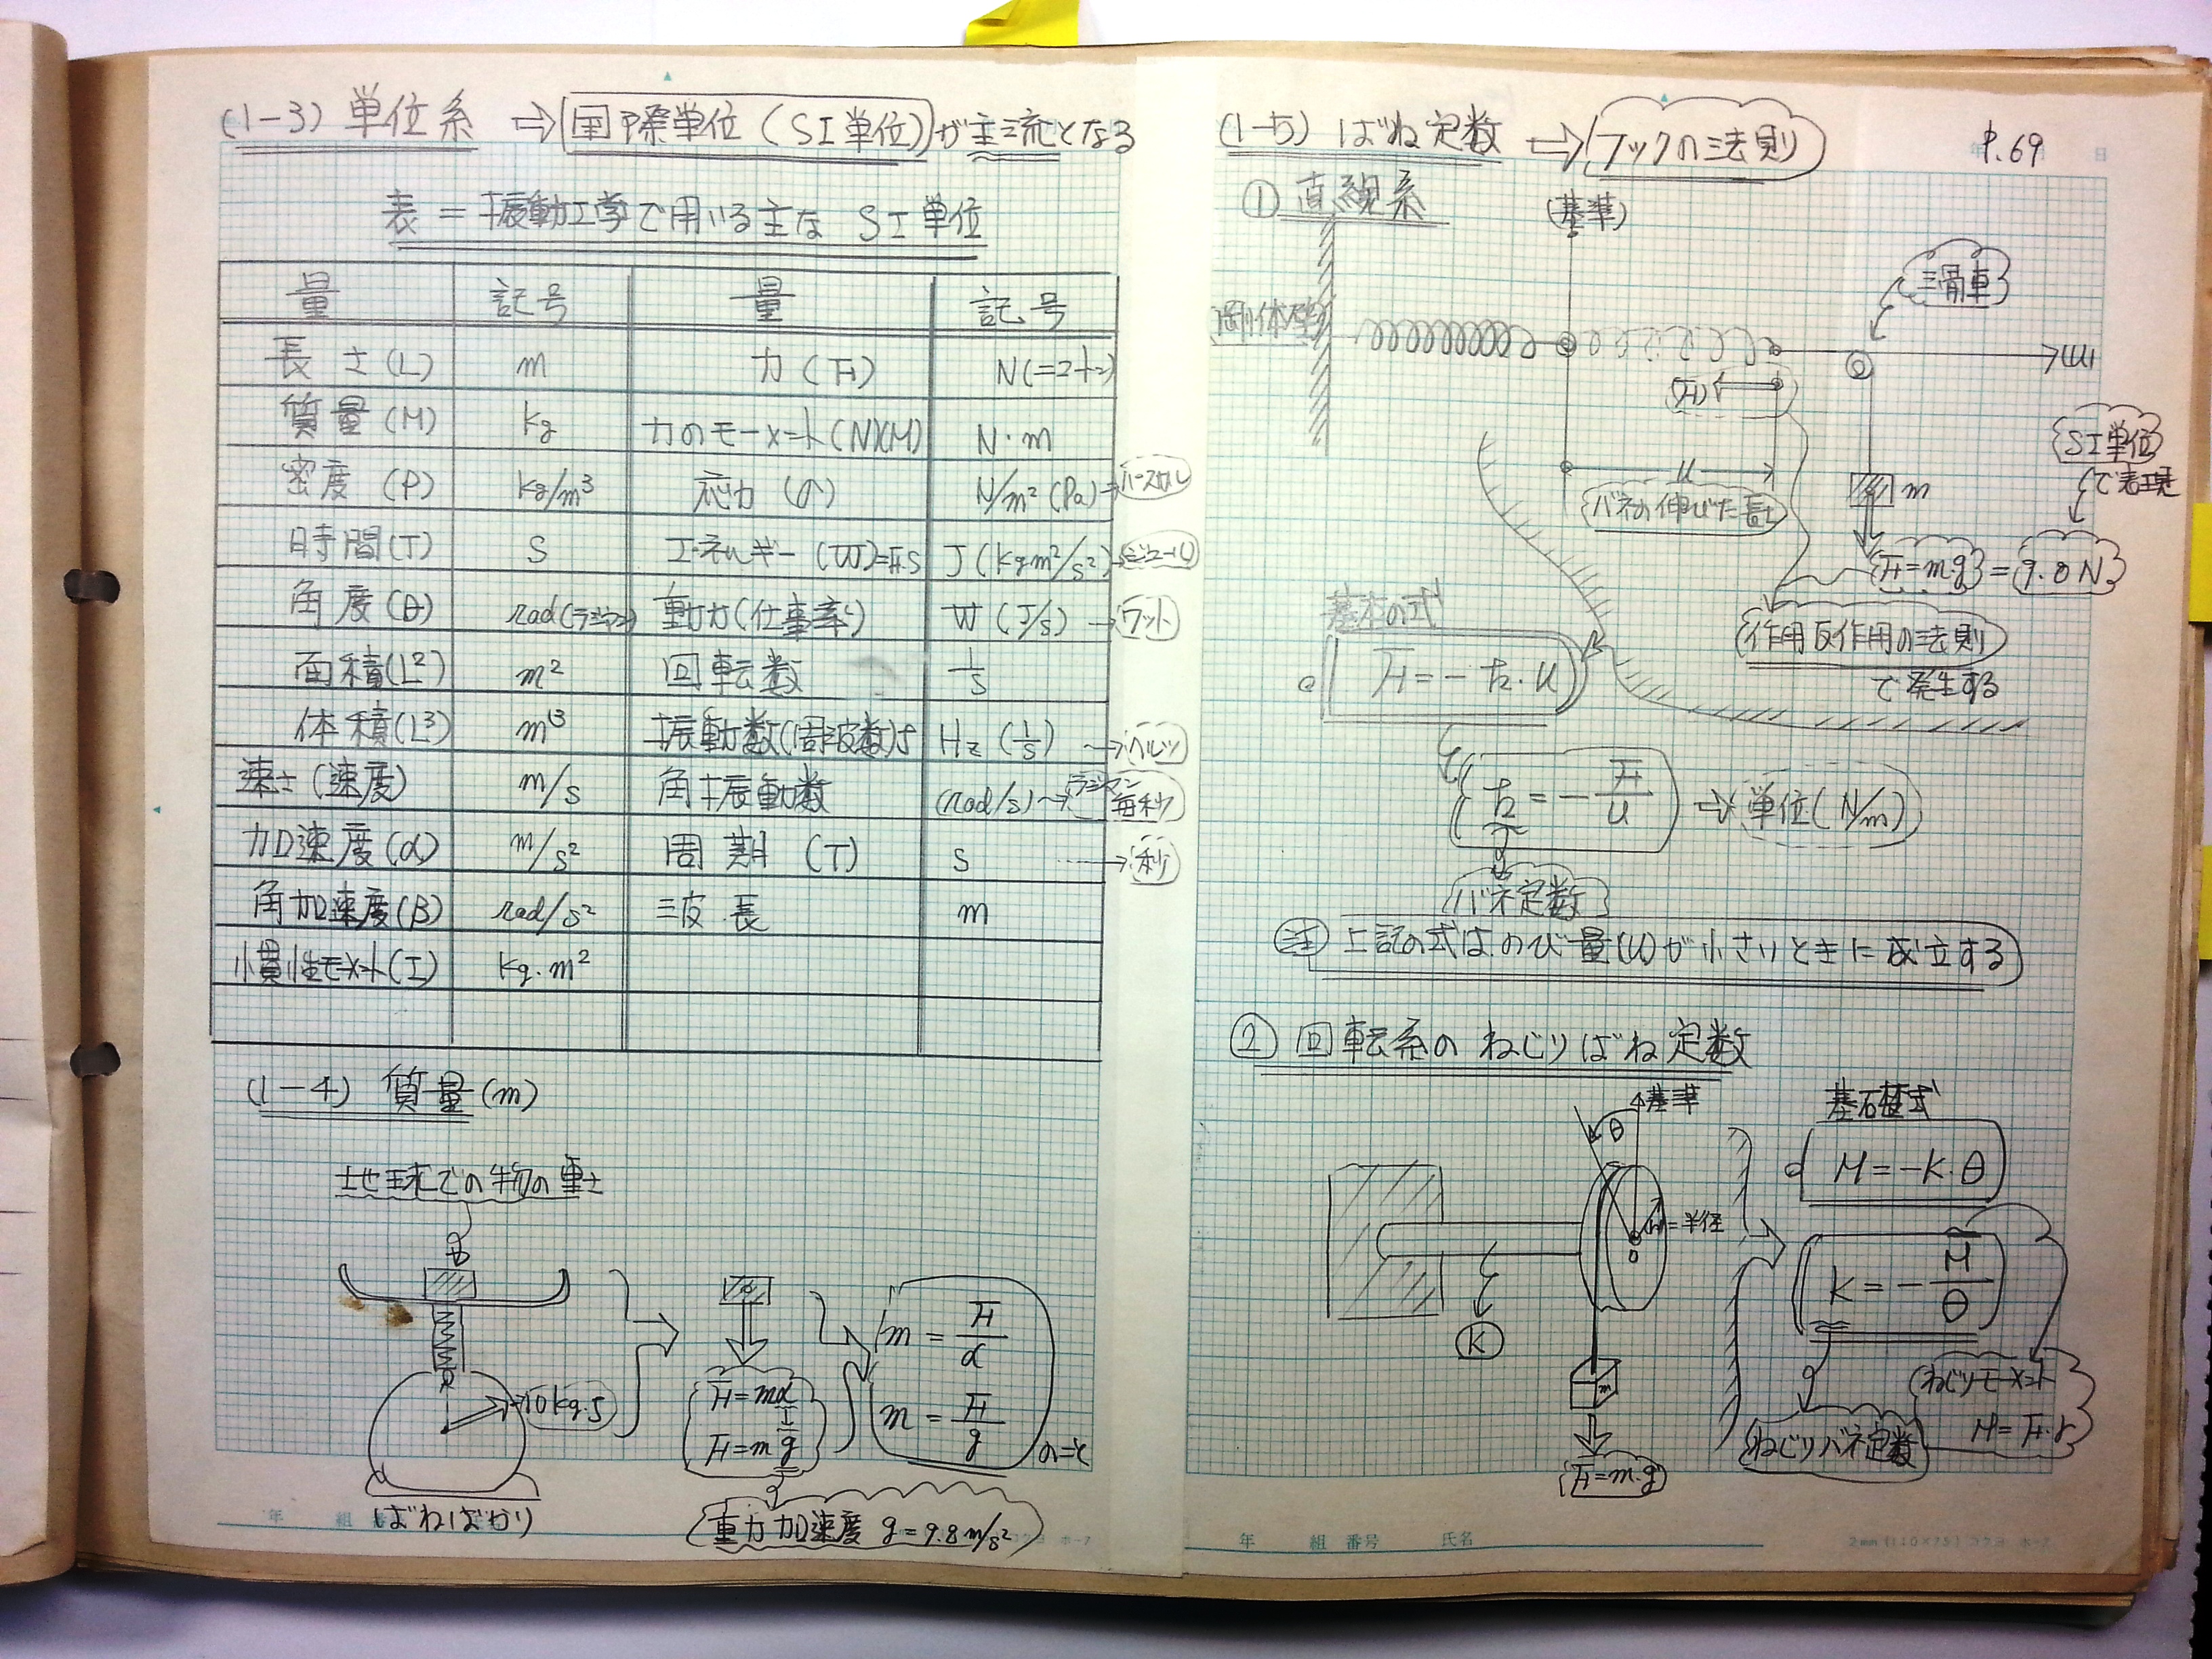 (1-3) 単位系 ⇒ 国際単位(SI単位)が主流となる
表=振動工学で用いる主な SI単位
量 記号 量 記号
長さ(L) m 力(F) N(ニュートン)
質量(M) kg 力のモーメント(N)(M) N・m
密度(P) kg/m³ 応力(σ) N/m²(Pa)→パスカル
時間(T) S エネルギー(W)=F.S J(kgm²/s²)→ジュール
角度(θ) rad(ラジアン) 動力(仕事率) W(J/s)→ワット
面積(L²) m² 回転数 1/s
体積(L³) m³ 振動数(周波数)f Hz(1/s)→ヘルツ
速さ(速度) m/s 角振動数 (rad/s)→ラジアン毎秒
加速度(α) m/s² 周期(T) S ……→秒
角加速度(β) rad/s² 波長 m
慣性モーメント(I) kg.m²
(1-4) 質量(m)
地球での物の重さ
10kg.f
ばねばかり
F=mα
F=mg
重力加速度 g=9.8m/s²
m=F/α
m=F/g
(1-5) ばね定数 ⇒ フックの法則
P.69
① 直線系
(基準)
剛体壁
滑車
(U)
(F)
u
バネの伸びた長さ
m
SI単位
で表現
F=m.g = 9.8N
作用反作用の法則
で発生する
基本の式
F=-k・u
k=-F/u ⇒ 単位(N/m)
バネ定数
注 上記の式はのび量(u)が小さいときに成立する
② 回転系のねじりばね定数
基準
θ
r=半径
o
K
m
F=m.g
基礎式
M=-K・θ
K=-M/θ
ねじりモーメント
M=F.r
ねじりバネ定数
年 組 番号
ホ-7
年 組 番号 氏名
2mm(110×75) コクヨ ホ-7